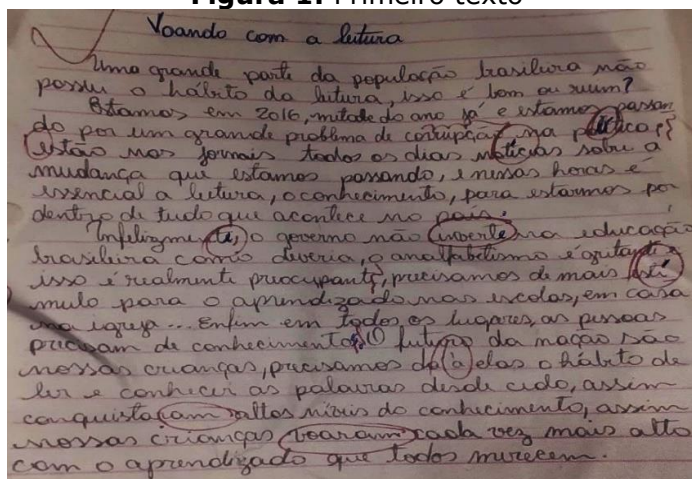 Figura 1. Primeiro texto
Voando com a leitura
Uma grande parte da população brasileira não
possui o hábito da leitura, isso é bom ou ruim?
Estamos em 2016, metade do ano já e estamos passan
do por um grande problema de corrupção na política,
estão nos jornais todos os dias notícias sobre a
mudança que estamos passando, e nessas horas é
essencial a leitura, o conhecimento, para estarmos por
dentro de tudo que acontece no país.
Infelizmente, o governo não inverte na educação
brasileira como deveria, o analfabetismo é
isso é realmente preocupante, precisamos de mais estí
mulo para o aprendizado nas escolas, em casa
na igreja... Enfim em todos os lugares, as pessoas
precisam de conhecimento, O futuro da nação são
nossas crianças, precisamos da à elas o hábito de
ler e conhecer as palavras desde cedo, assim
conquistaram altos níveis do conhecimento, assim
nossas crianças voaram cada vez mais alto
com o aprendizado que todos merecem.